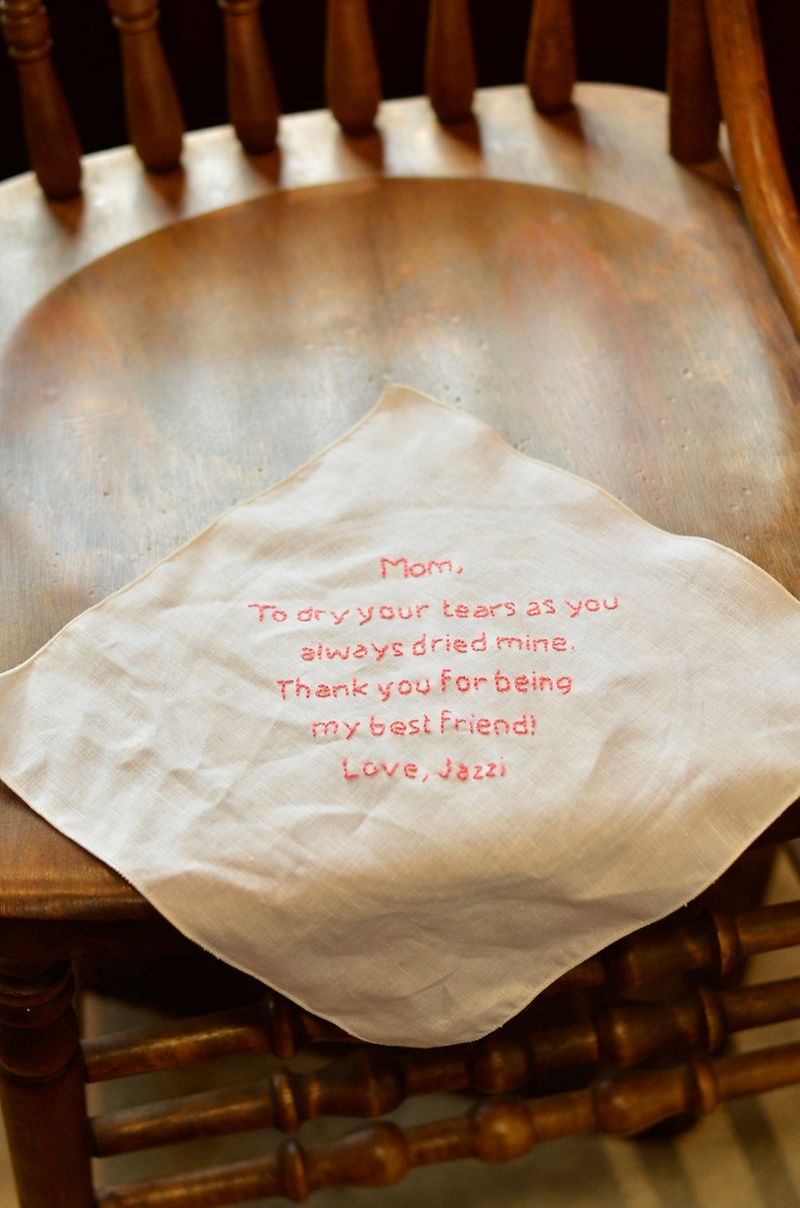 Mom,
To dry your tears as you
always dried mine.
Thank you for being
my best friend!
Love, Jazzi